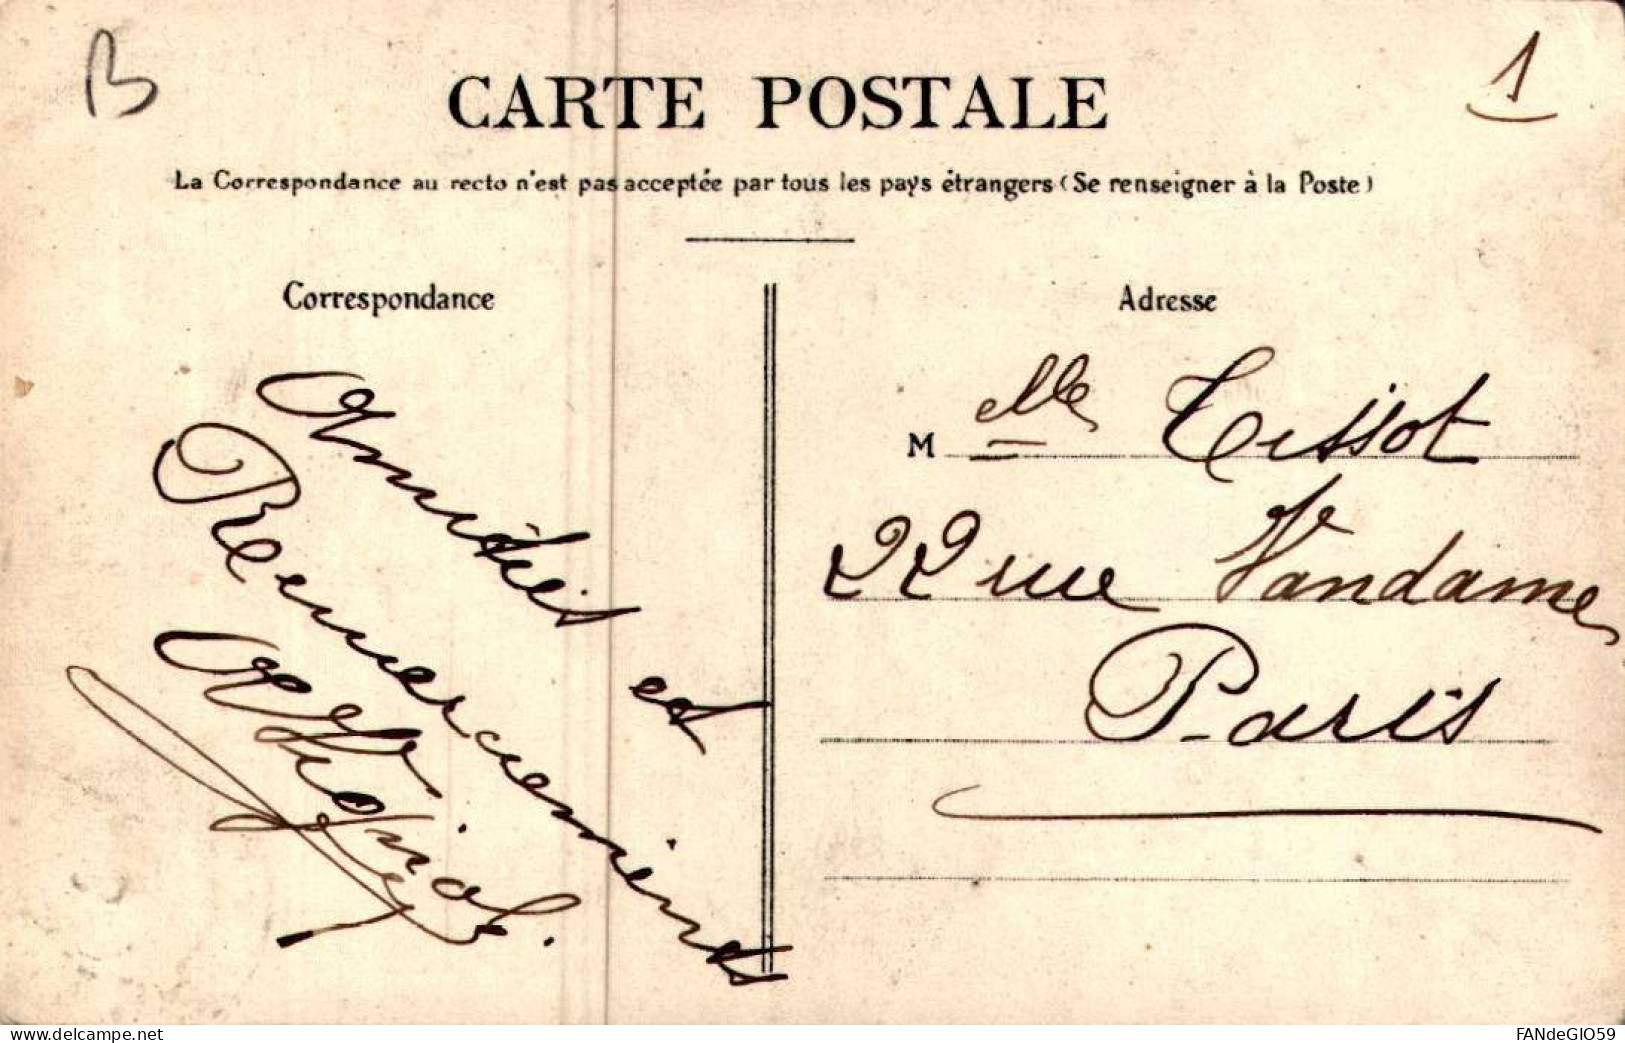 B
1
CARTE POSTALE
La Correspondance au recto n'est pas acceptée par tous les pays étrangers (Se renseigner à la Poste)
Correspondance
Amitiés et
Remerciements
Adresse
M elle Tissot
22 rue Vandame
Paris
delcampe.net
FANdeGIO59